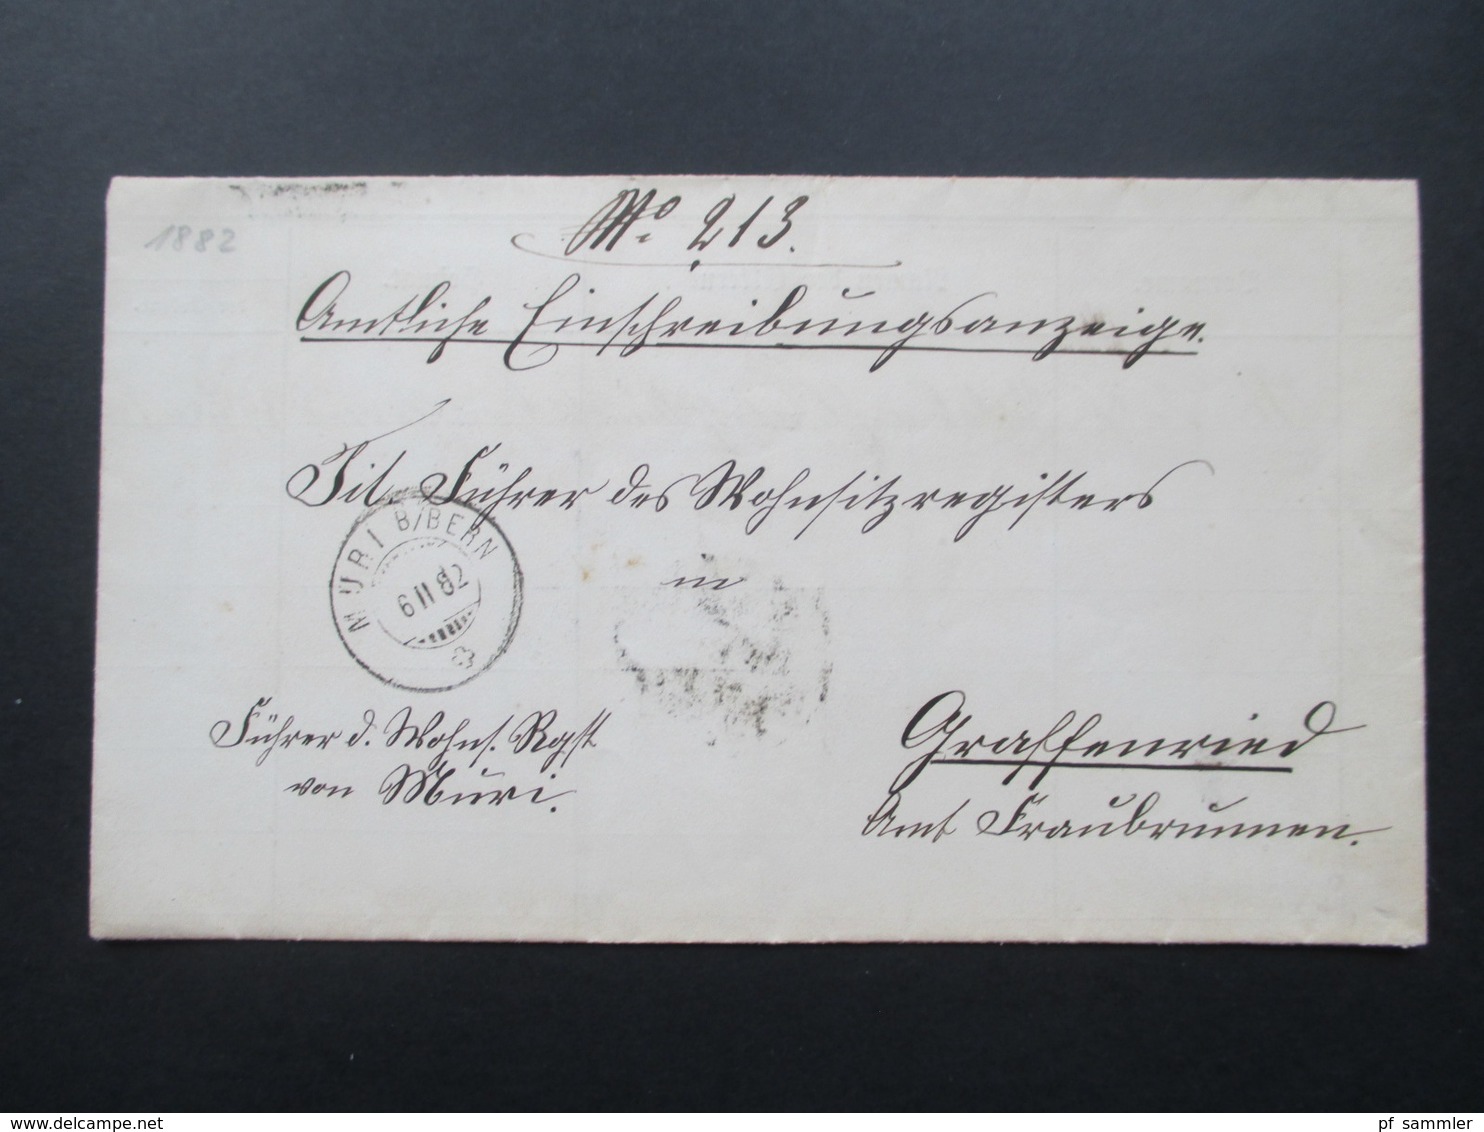 1882
No. 213.
Amtliche Einschreibungsanzeige.
Tit. Führer des Wohnsitzregisters
in
MURI B/BERN
6 II 82
Führer d. Wohns. Rgst
von Muri.
Graffenried
Amt Fraubrunnen.
delcampe.net
pf_sammler